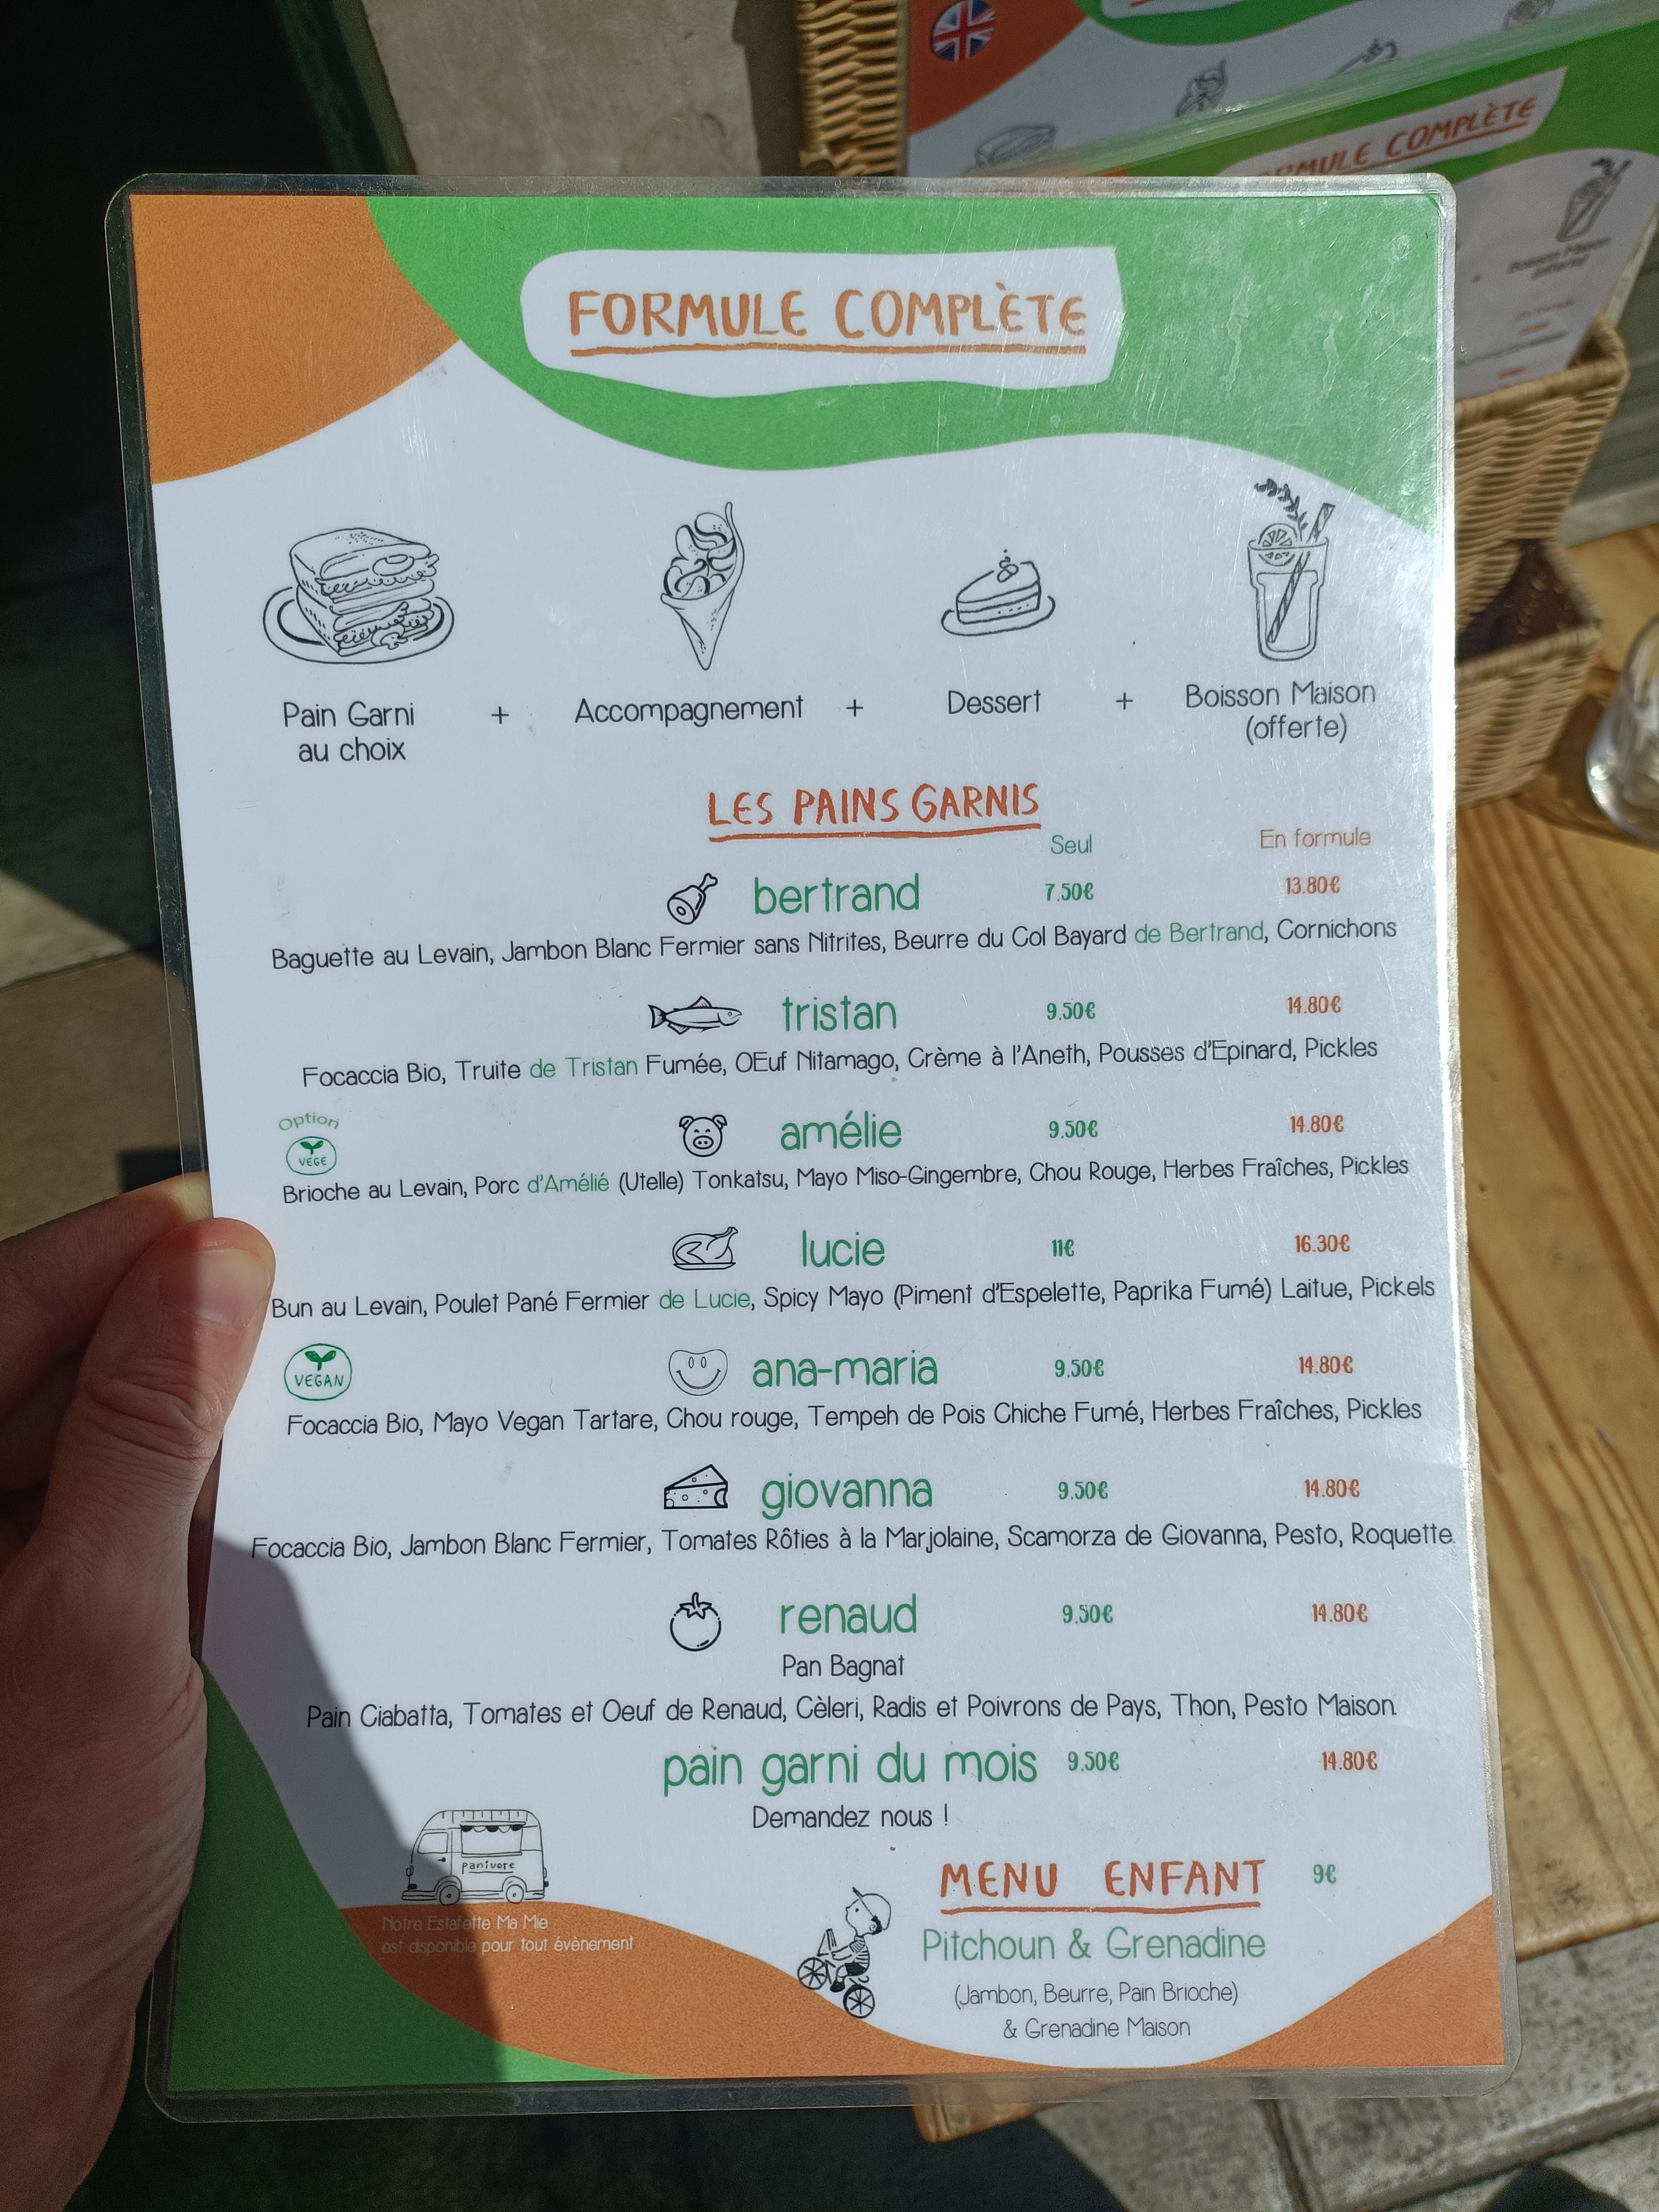 FORMULE COMPLÈTE
FORMULE COMPLÈTE
Pain Garni
au choix
+
Accompagnement
+
Dessert
+
Boisson Maison
(offerte)
LES PAINS GARNIS
Seul
En formule
bertrand 7.50€ 13.80€
Baguette au Levain, Jambon Blanc Fermier sans Nitrites, Beurre du Col Bayard de Bertrand, Cornichons
tristan 9.50€ 14.80€
Focaccia Bio, Truite de Tristan Fumée, OEuf Nitamago, Crème à l'Aneth, Pousses d'Epinard, Pickles
Option
VEGE
amélie 9.50€ 14.80€
Brioche au Levain, Porc d'Amélié (Utelle) Tonkatsu, Mayo Miso-Gingembre, Chou Rouge, Herbes Fraîches, Pickles
lucie 11€ 16.30€
Bun au Levain, Poulet Pané Fermier de Lucie, Spicy Mayo (Piment d'Espelette, Paprika Fumé) Laitue, Pickels
VEGAN
ana-maria 9.50€ 14.80€
Focaccia Bio, Mayo Vegan Tartare, Chou rouge, Tempeh de Pois Chiche Fumé, Herbes Fraîches, Pickles
giovanna 9.50€ 14.80€
Focaccia Bio, Jambon Blanc Fermier, Tomates Rôties à la Marjolaine, Scamorza de Giovanna, Pesto, Roquette.
renaud 9.50€ 14.80€
Pan Bagnat
Pain Ciabatta, Tomates et Oeuf de Renaud, Cèleri, Radis et Poivrons de Pays, Thon, Pesto Maison.
pain garni du mois 9.50€ 14.80€
Demandez nous !
panivore
Notre Estafette Ma Mie
est disponible pour tout évènement
MENU ENFANT 9€
Pitchoun & Grenadine
(Jambon, Beurre, Pain Brioche)
& Grenadine Maison